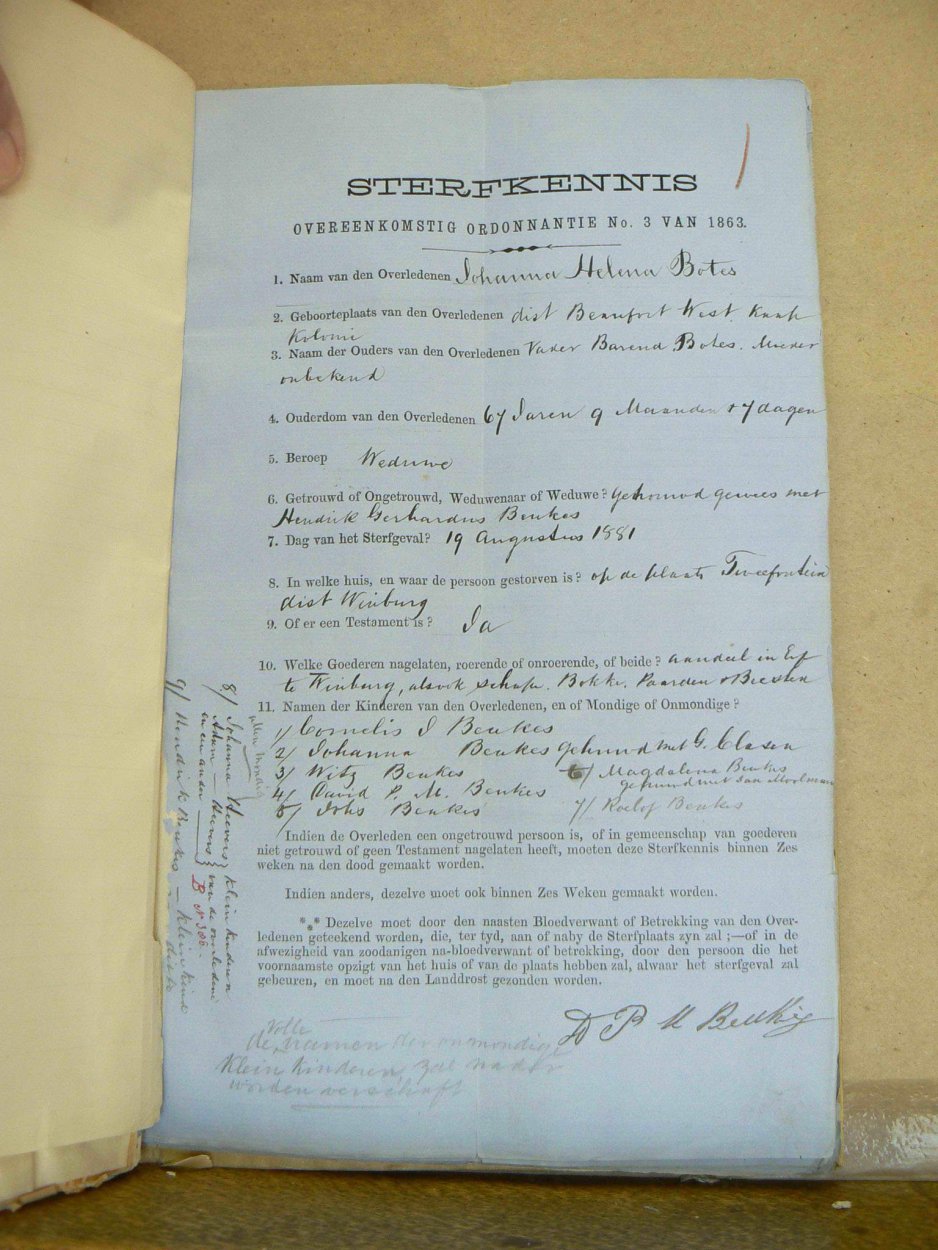 STERFKENNIS
OVEREENKOMSTIG ORDONNANTIE No. 3 VAN 1863.
1. Naam van den Overledenen Johanna Helena Botes
2. Geboorteplaats van den Overledenen dist Beaufort West Kaap
Kolonie
3. Naam der Ouders van den Overledenen Vader Barend Botes. Moeder
onbekend
4. Ouderdom van den Overledenen 67 Jaren 9 Maanden + 7 dagen
5. Beroep Weduwe
6. Getrouwd of Ongetrouwd, Weduwenaar of Weduwe? getrouwd gewees met
Hendrik Gerhardus Beukes
7. Dag van het Sterfgeval? 19 Augustus 1881
8. In welke huis, en waar de persoon gestorven is? op de plaats Tweefontein
dist Winburg
9. Of er een Testament is? Ja
10. Welke Goederen nagelaten, roerende of onroerende, of beide? aandeel in Erf
te Winburg, alsook schape. Bokke. Paarden & Beesten
11. Namen der Kinderen van den Overledenen, en of Mondige of Onmondige?
1/ Cornelis J Beukes
2/ Johanna Beukes getrouwd met G. Clasen
3/ Witz Beukes
4/ David P. M. Beukes
5/ Johs Beukes
6/ Magdalena Beukes
getrouwd met Jan Moolman
7/ Roelof Beukes
allen mondig
8/ Johanna Heevers } Klein kinderen
Adam — Heevers } van de overledene
en een ander
B No 306.
9/ Hendrik Beukes — Klein kind
Indien de Overleden een ongetrouwd persoon is, of in gemeenschap van goederen
niet getrouwd of geen Testament nagelaten heeft, moeten deze Sterfkennis binnen Zes
weken na den dood gemaakt worden.
Indien anders, dezelve moet ook binnen Zes Weken gemaakt worden.
*** Dezelve moet door den naasten Bloedverwant of Betrekking van den Over-
ledenen geteekend worden, die, ter tyd, aan of naby de Sterfplaats zyn zal ;—of in de
afwezigheid van zoodanigen na-bloedverwant of betrekking, door den persoon die het
voornaamste opzigt van het huis of van de plaats hebben zal, alwaar het sterfgeval zal
gebeuren, en moet na den Landdrost gezonden worden.
D P M Beukes
de volle namen der onmondige
Klein Kinderen zal nader
worden verschaft